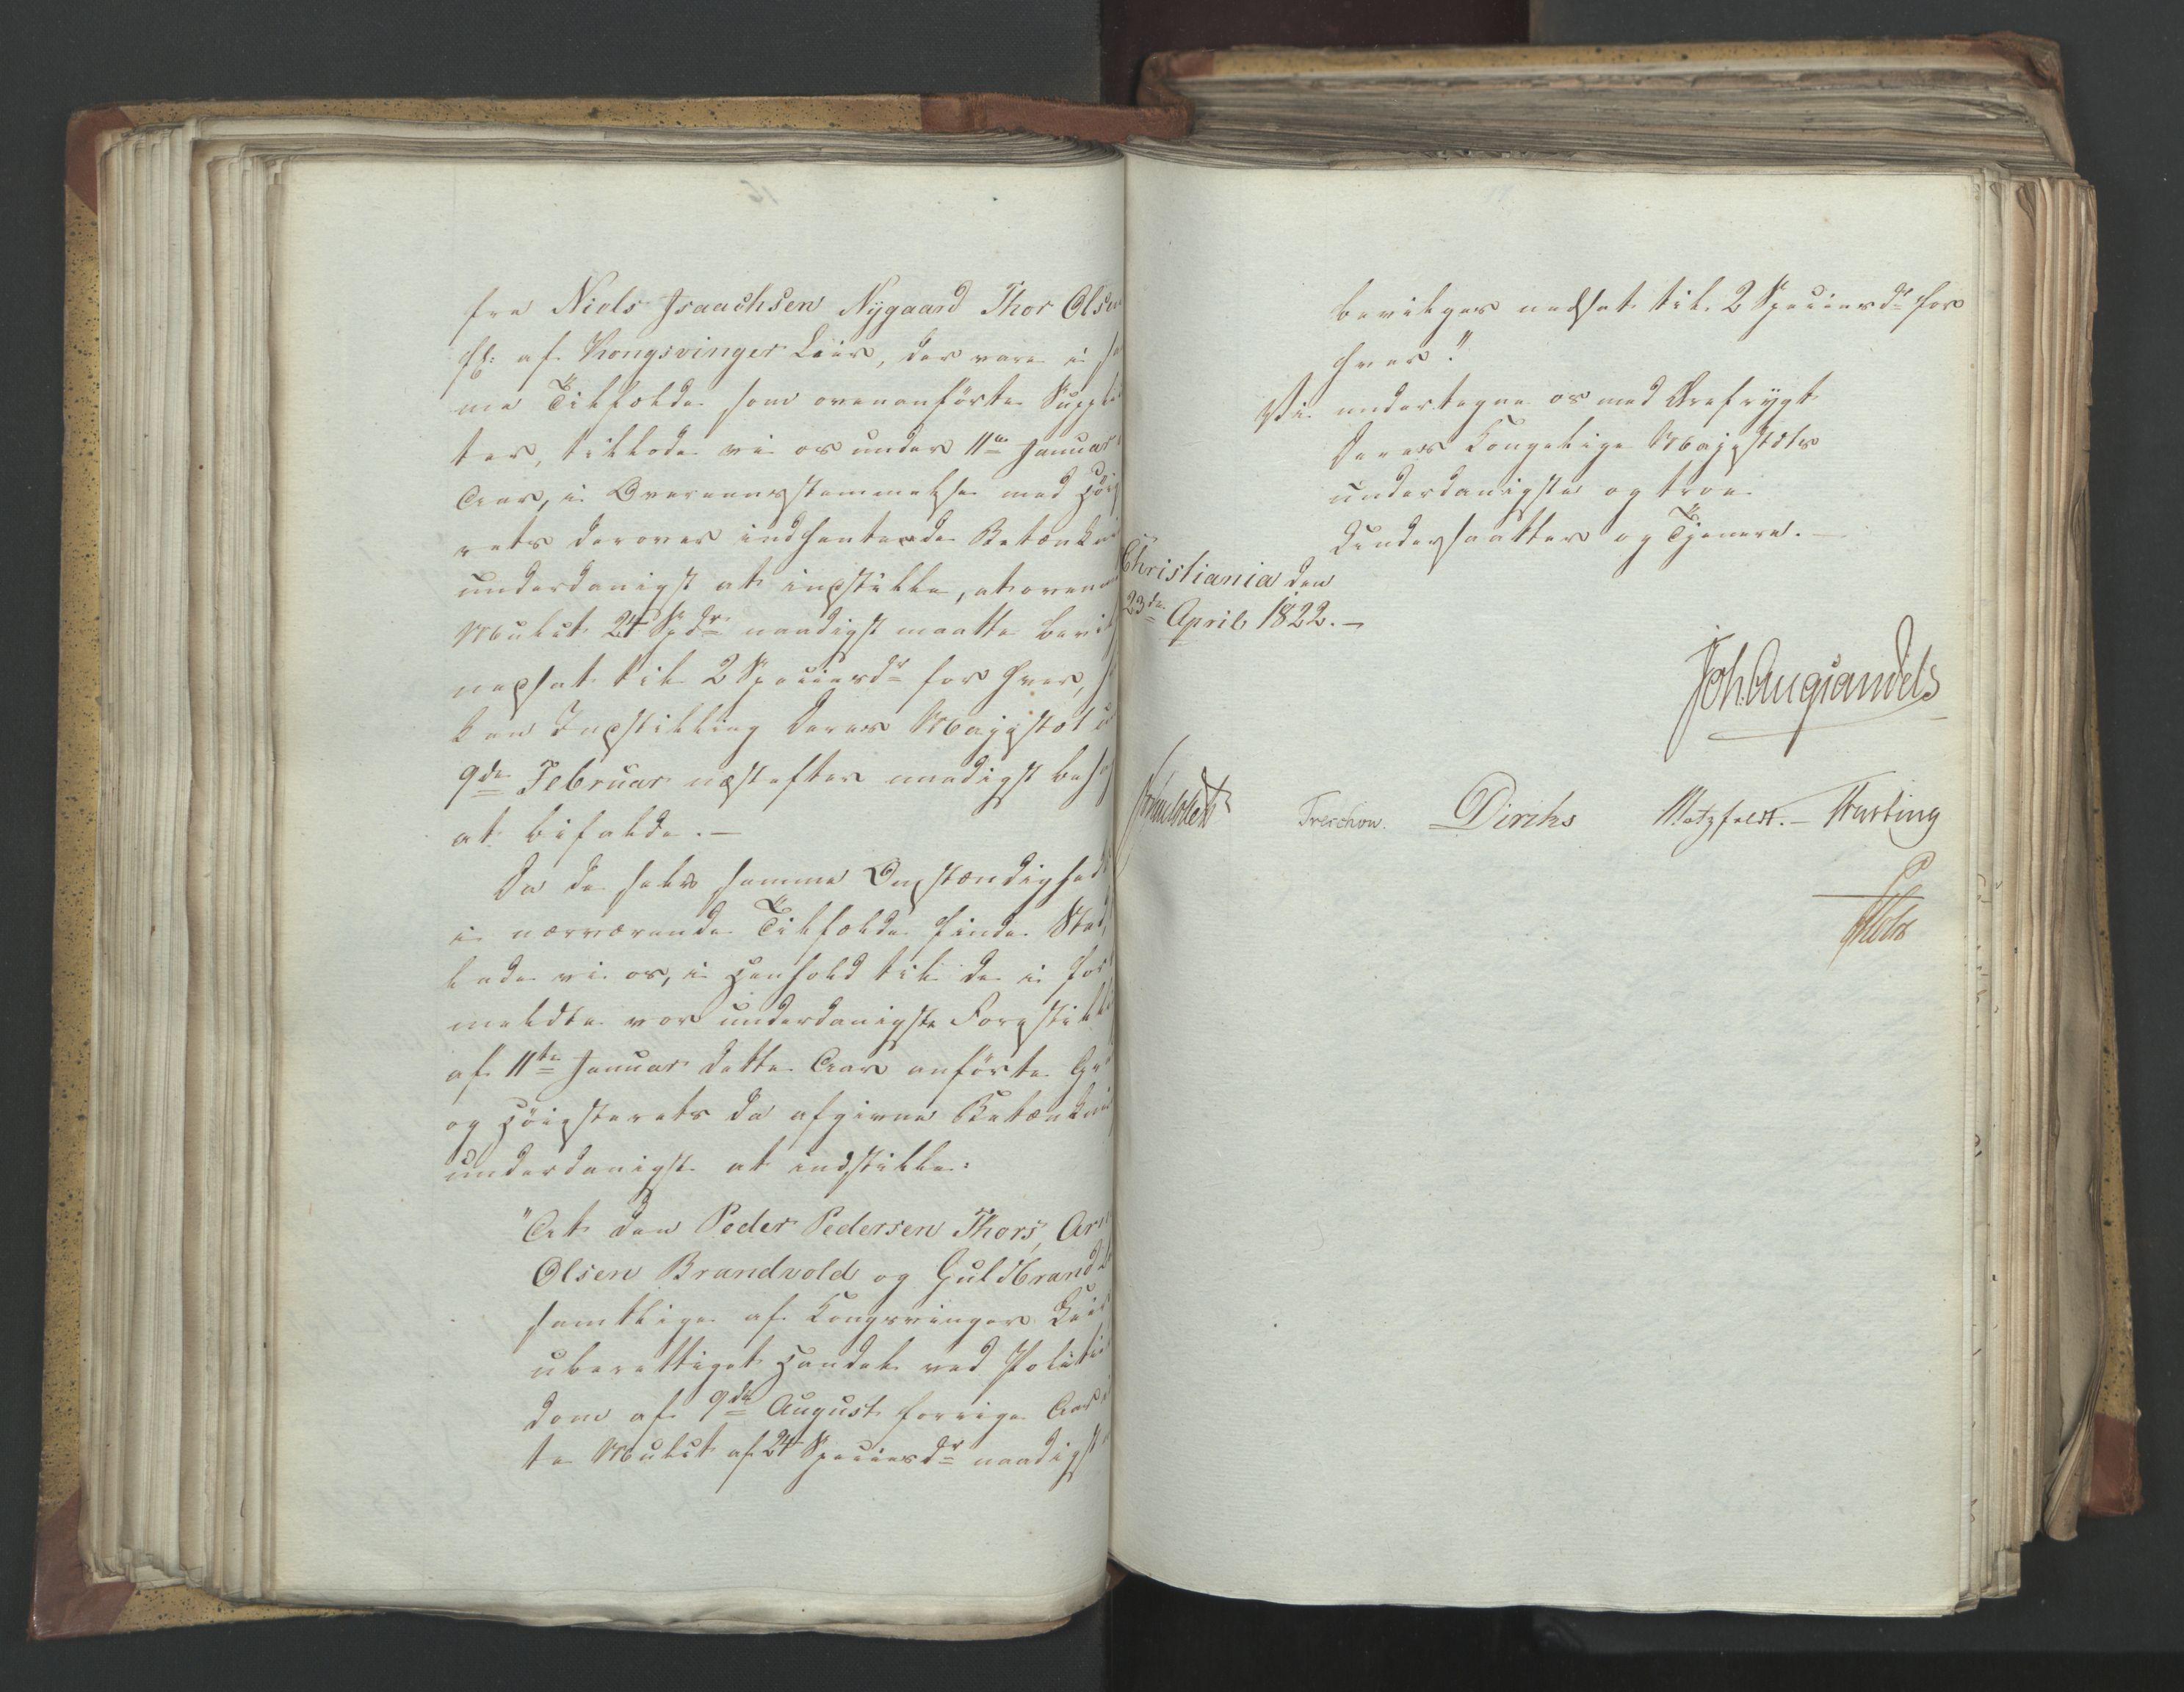 fra Niels Isaachsen Nygaard Thor Olsen
fl: af Kongsvinger Leir, der vare i sa
me Tilfælde som ovenanførte Supplik
ter, tillode vi os under 11te Januar
Aar, i Overeensstemmelse med Høies
rets derover indhentede Betænkni
underdanigst at indstille, at oven
Mulct 24 Spdr naadigst maatte bevil
nedsat til 2 Speciesdr for hver,
ken Indstilling Deres Majestæt u
9de Februar næstefter naadigst beh
at bifalde. —
Da de selv samme Omstændighed
i nærværende Tilfælde finde Sted,
lade vi os, i Henhold til de i for
meldte vor underdanigste Forestill
af 11te Januar dette Aar anførte Gr
og Høiesterets da afgivne Betænkni
underdanigst at indstille:
"At den Peder Pedersen Thors, Ar
Olsen Brandvold og Guldbrand
samtlige af Kongsvinger Leir
uberettiget Handel ved Politie
dom af 9de August forrige Aar
te Mulct af 24 Speciesdr naadigst
bevilges nedsat til 2 Speciesdr for
hver."
Vi undertegne os med Ærefrygt
Deres Kongelige Majestæts
underdanigste og troe
Undersaatter og Tjenere. —
Christiania den
23de April 1822. —
Joh. Aug Sandels
Treschow. Diriks Motzfeldt. — Fasting
Holst